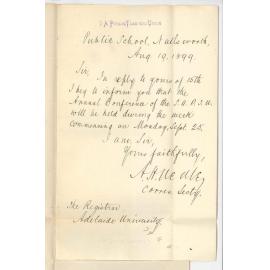 S.A. Public Teachers Union
Public School, Nailsworth,
Aug 19, 1899
Sir,
In reply to yours of 15th
I beg to inform you that the
Annual Conference of the S.A.P.S.U.
will be held during the week
commencing on Monday, Sept. 25.
I am, Sir,
Yours faithfully,
Corres. Secty.
The Registrar
Adelaide University